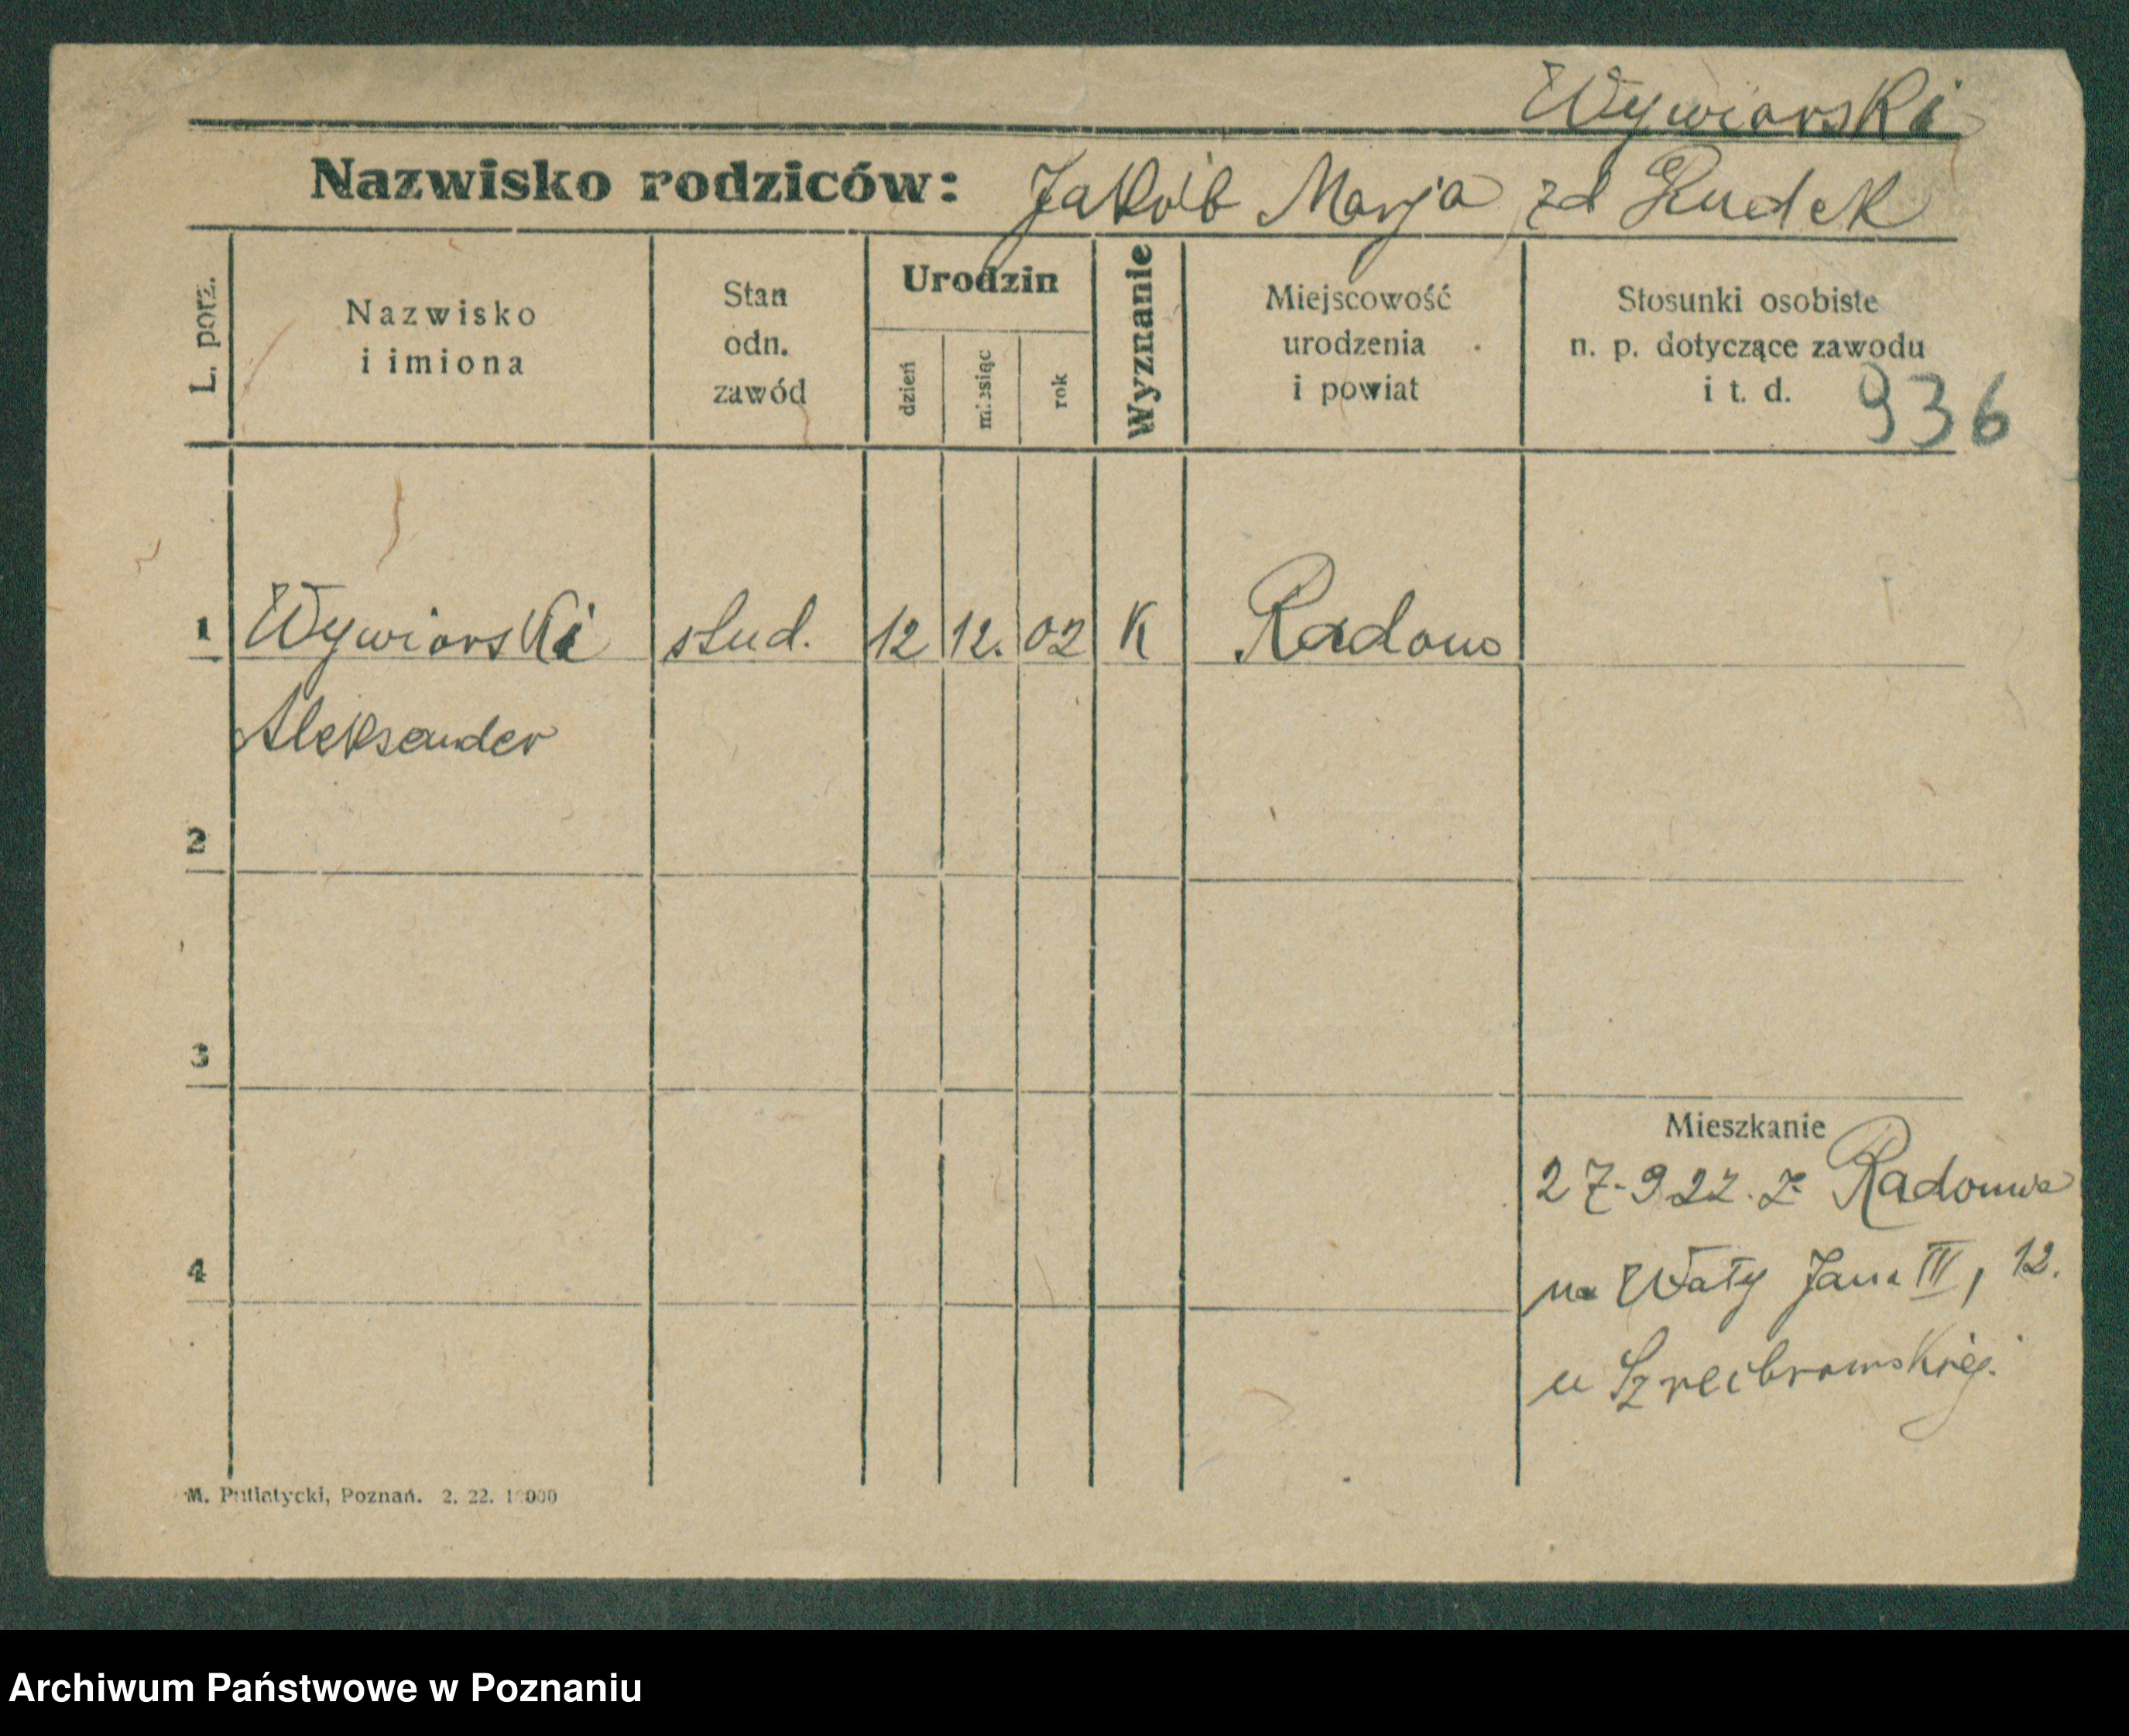 Wywiorski
Nazwisko rodziców: Jakób Marja zd Rudek
L. porz.
Nazwisko
i imiona
Stan
odn.
zawód
Urodzin
dzień
miesiąc
rok
Wyznanie
Miejscowość
urodzenia
i powiat
Stosunki osobiste
n. p. dotyczące zawodu
i t. d.
936
1 Wywiorski stud. 12 12. 02 K Radom
Aleksander
2
3
4
Mieszkanie
27-922. z Radomia
na Wały Jana III, 12.
u
M. Putiatycki, Poznań. 2. 22. 10000
Archiwum Państwowe w Poznaniu